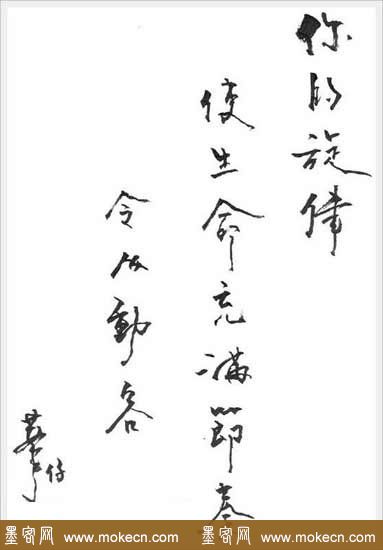 你的旋律
使生命充滿節奏
令人動容
華仔
墨客网 www.mokecn.com 墨客网 www.mokecn.com 墨客网